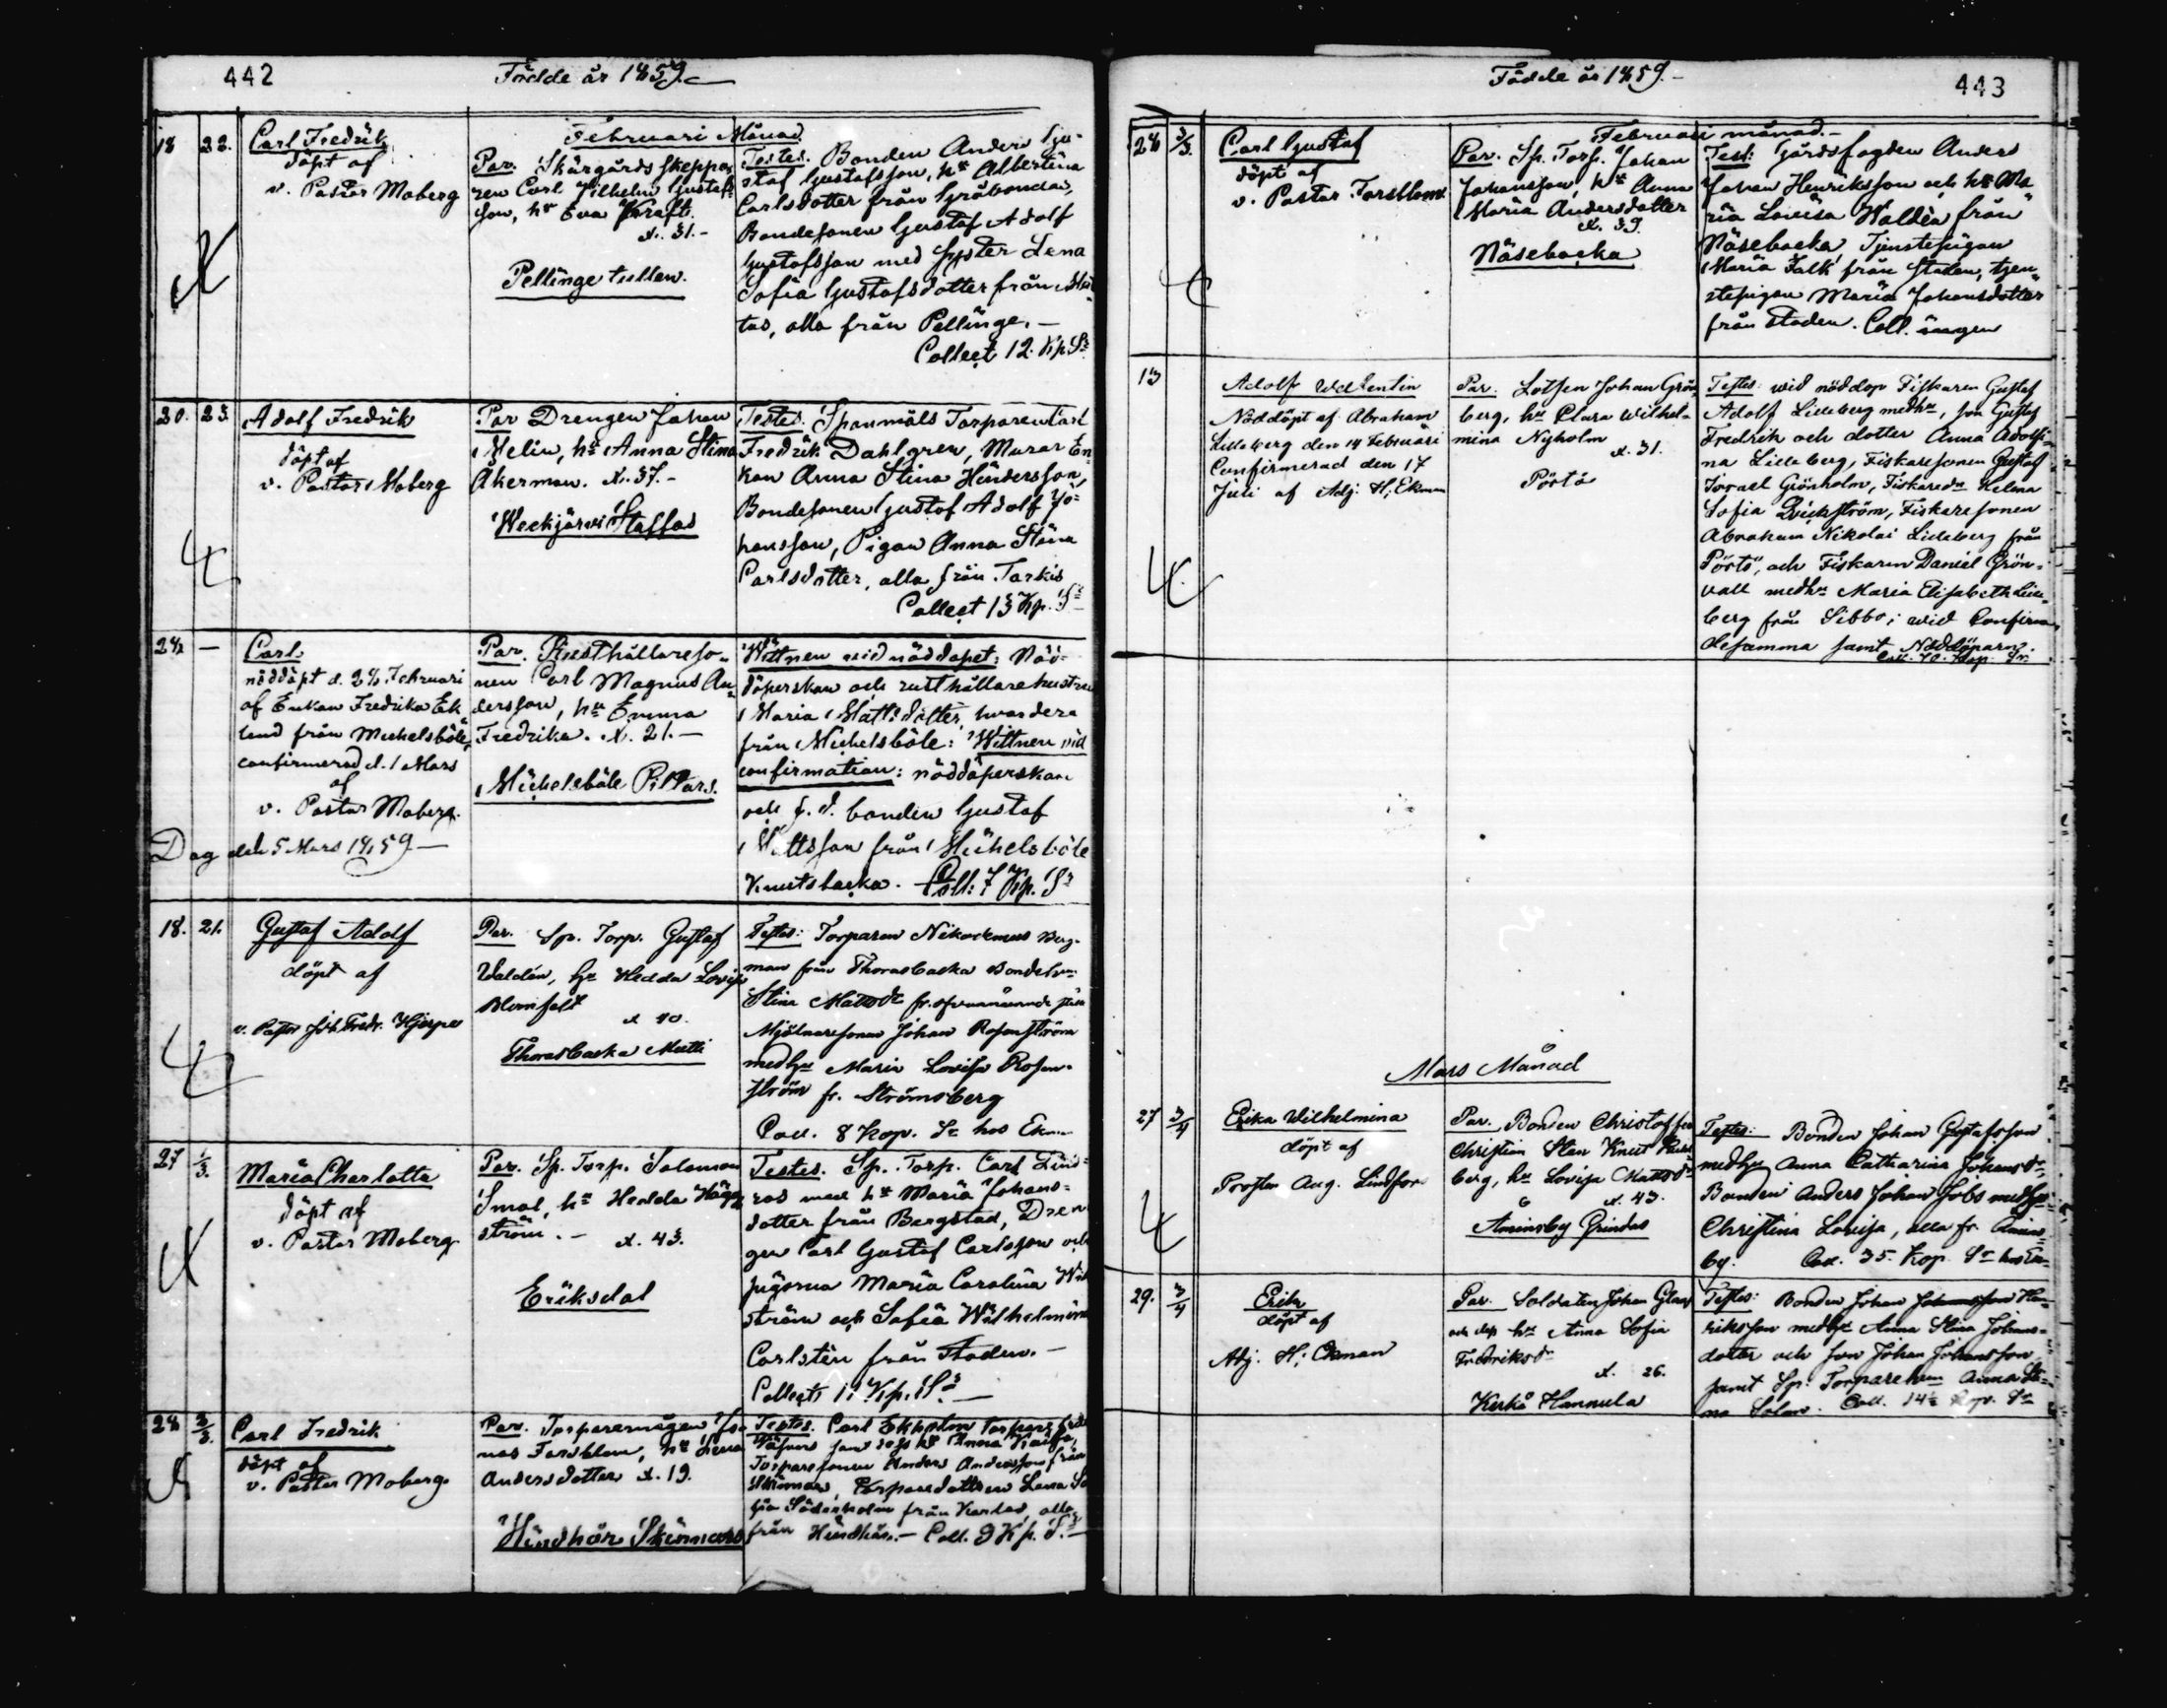 442
Födde år 1859.
Februari Månad
18 22.
Carl Fredrik
döpt af
v. Pastor Moberg
Par. Skärgårds skeppa-
ren Carl Vilhelm Gustafs-
son, hu Eva Kraft.
x. 31.-
Pellinge tullen.
Testes. Bonden Anders Gu-
staf Gustafsson, hu Albertina
Carlsdotter från Gräbonda,
Bondesonen Gustaf Adolf
Gustafsson med syster Lena
Sofia Gustafsdotter från
tas, alla från Pellinge.-
Collect 12. Kp. Sr
20. 23.
Adolf Fredrik
döpt af
v. Pastor Moberg
Par Drengen Johan
Melin, hu Anna Stina
Åkerman. x. 37.-
Weckjärvi Staffas
Testes. Spanmåls Torparen Carl
Fredrik Dahlgren, Murar En-
kan Anna Stina Hindersson,
Bondesonen Gustaf Adolf Jo-
hansson, Pigan Anna Stina
Carlsdotter, alla från Tarkis
Collect 13 Kp. Sr
24 —
Carl
nöddöpt d. 24 Februari
af Enkan Fredrika Ek-
lund från Michelsböle,
confirmerad d. 1 Mars
af
v. Pastor Moberg.
Dog den 5 Mars 1859.—
Par. Rusthållareso-
nen Carl Magnus An-
dersson, hu Emma
Fredrika. x. 21.—
Michelsböle Pittars.
Wittnen vid nöddopet: Nöd-
döperskan och rusthållarehustru
Maria Mattsdotter, hvardera
från Michelsböle: Wittnen vid
confirmation: nöddöperskan
och f. d. bonden Gustaf
Mattsson från Michelsböle
Knutsbacka. Coll: 7 Kp. Sr
18. 21.
Gustaf Adolf
döpt af
v. Pastor Joh. Fredr. Hjerpe
Par. Sp. Torp. Gustaf
Waldén, hu Hedda Lovisa
Blomfelt
x 40.
Thorasbacka Matti
Testes: Torparen Nikodemus Berg-
man från Thorasbacka Bondehu
Stina Mattsdr fr. ofvannämnde ställe
Mjölnaresonen Johan Rosenström
medhu Maria Lovisa Rosen-
ström fr. Strömsberg
Coll. 8 Kop. Sr hos Ekm
27 1/3.
Maria Charlotta
döpt af
v. Pastor Moberg
Par. Sp. Torp. Salomon
Smal, hu Hedda Hägg-
ström.- x. 43.
Eriksdal
Testes. Sp. Torp. Carl Lind-
ros med hu Maria Johans-
dotter från Bergstad, Dren-
gen Carl Gustaf Carlsson och
pigorna Maria Carolina
ström och Sofia Wilhelmina
Carlstén från Staden.—
Collect Kp. Sr—
28 3/3.
Carl Fredrik
döpt af
v. Pastor Moberg
Par. Torparemågen Jo-
nas Forsblom, hu Lena
Andersdotter x. 19.
Hindhår Skinnars
Testes. Carl Ekholm Torpare från
samt dess hu Anna Kajsa,
Torparesonen Anders Andersson från
Skinnars, Torparedottren Lena So-
fia Söderholm från alla
från Hindhår.— Coll. 9 Kp. Sr
Födde år 1859.-
443
Februari månad.-
24 3/3.
Carl Gustaf
döpt af
v. Pastor Forsblom
Par. Sp. Torp. Johan
Johansson, hu Anna
Maria Andersdotter
x. 39.
Näsebacka
Test: Gårdsfogden Anders
Johan Henriksson och hu Ma-
ria Lovisa Waldén från
Näsebacka, Tjenstepigan
Maria Falk från staden, tjen-
stepigan Maria Johansdotter
från staden. Coll. ingen
13
Adolf Walentin
Nöddöpt af Abraham
Lilleberg den 14 Februari
Confirmerad den 17
Juli af Adj. H: Ekman
Par. Lotsen Johan Grön-
berg, hu Clara Wilhel-
mina Nyholm
x. 31.
Pörtö
Testes: wid nöddop Fiskaren Gustaf
Adolf Lilleberg medhu, son Gustaf
Fredrik och dotter Anna Adolfi-
na Lilleberg, Fiskaresonen Gustaf
Israel Grönholm, Fiskaredr Helena
Sofia Dickström, Fiskaresonen
Abraham Nikolai Lilleberg från
Pörtö, och Fiskaren Daniel Grön-
vall medhu Maria Elisabeth Lille-
berg från Sibbo; wid Confirm.
desamma samt Nöddöparn.
Coll. 40. Kop. Sr.
Mars Månad
27 3/4
Erika Wilhelmina
döpt af
Prosten Aug. Lindfors
Par. Bonden Christoffer
Christian Sten Knut
berg, hu Lovisa Mattsdr
x. 43.
Aminsby Grindas
Testes: Bonden Johan Gustafsson
medhu Anna Catharina Johansdr
Bonden Anders Johan Jobs medhu
Christina Lovisa, alla fr. Amins-
by. Coll. 35. Kop. Sr hos Em
29. 3/4
Erik
döpt af
Adj. H: Ekman
Par. Soldaten Johan Glas
och dess hu Anna Sofia
Fredriksdr
x. 26.
Kerkå Hannula
Testes: Bonden Johan Johansson Hen-
riksson medhu Anna Stina Johans-
dotter och son Johan Johansson
samt Sp: Torparehu Anna Sti-
na Solan. Coll. 14½ Kop. Sr